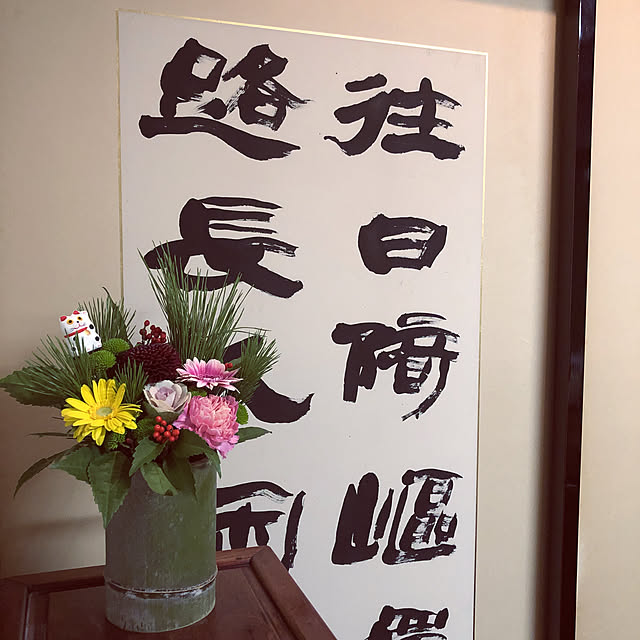 往日崎嶇
路長人困